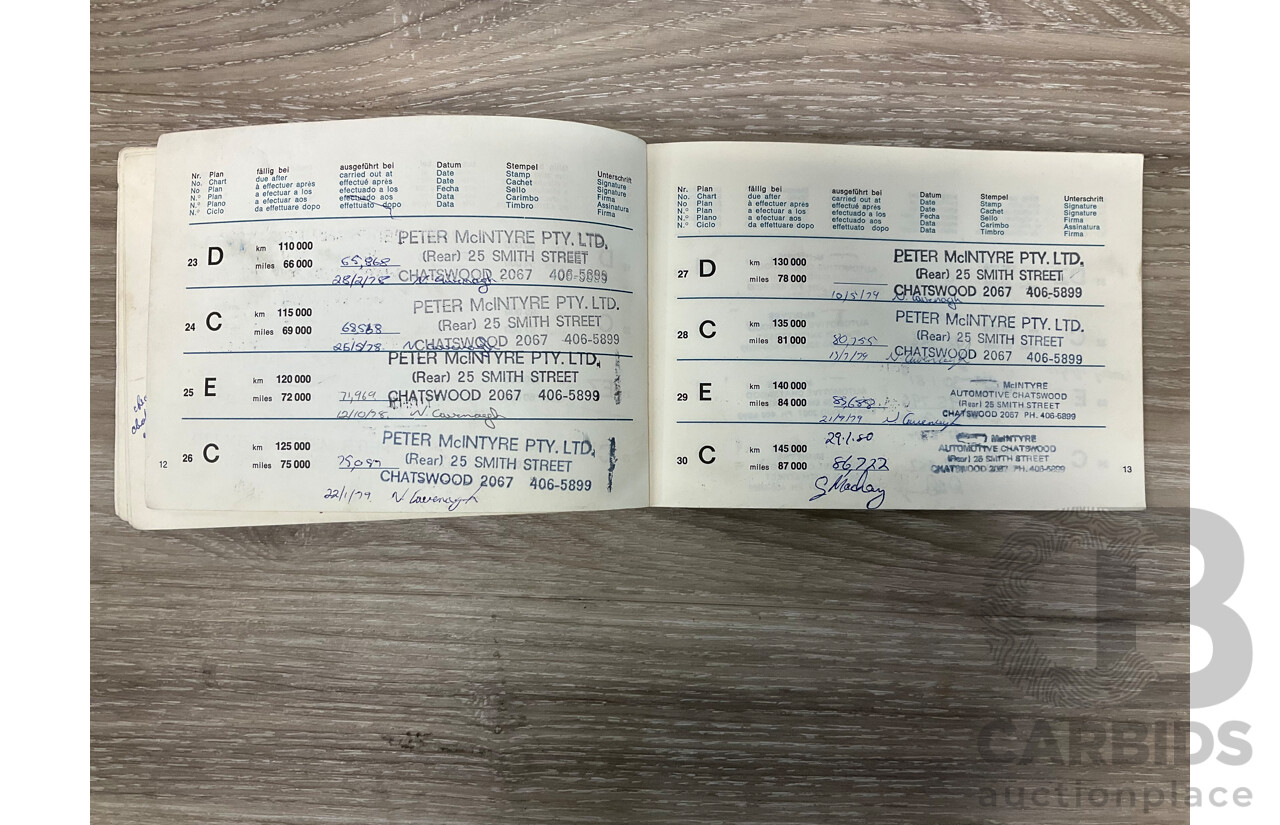 Nr. Plan fällig bei ausgeführt bei Datum Stempel Unterschrift
No. Chart due after carried out at Date Stamp Signature
No Plan à effectuer après effectué après Date Cachet Signature
N.° Plan a efectuar a los efectuado a los Fecha Sello Firma
N.° Plano a efectuar aos efectuado aos Data Carimbo Assinatura
N.° Ciclo da effettuare dopo effettuato dopo Data Timbro Firma
23 D km 110 000 PETER McINTYRE PTY. LTD.
miles 66 000 65,868 (Rear) 25 SMITH STREET
28/2/78 N Cavenagh CHATSWOOD 2067 406-5899
24 C km 115 000 PETER McINTYRE PTY. LTD.
miles 69 000 68568 (Rear) 25 SMITH STREET
25/5/78 N Cavenagh CHATSWOOD 2067 406-5899
25 E km 120 000 PETER McINTYRE PTY. LTD.
miles 72 000 71,969 (Rear) 25 SMITH STREET
CHATSWOOD 2067 406-5899
12/10/78 N Cavenagh
26 C km 125 000 PETER McINTYRE PTY. LTD.
miles 75 000 (Rear) 25 SMITH STREET
CHATSWOOD 2067 406-5899
22/1/79 N Cavenagh
12
Nr. Plan fällig bei ausgeführt bei Datum Stempel Unterschrift
No. Chart due after carried out at Date Stamp Signature
No Plan à effectuer après effectué après Date Cachet Signature
N.° Plan a efectuar a los efectuado a los Fecha Sello Firma
N.° Plano a efectuar aos efectuado aos Data Carimbo Assinatura
N.° Ciclo da effettuare dopo effettuato dopo Data Timbro Firma
27 D km 130 000 PETER McINTYRE PTY. LTD.
miles 78 000 (Rear) 25 SMITH STREET
10/5/79 N Cavenagh CHATSWOOD 2067 406-5899
28 C km 135 000 PETER McINTYRE PTY. LTD.
miles 81 000 80,755 (Rear) 25 SMITH STREET
13/7/79 N Cavenagh CHATSWOOD 2067 406-5899
29 E km 140 000 McINTYRE
AUTOMOTIVE CHATSWOOD
miles 84 000 (Rear) 25 SMITH STREET
21/9/79 N Cavenagh CHATSWOOD 2067 PH. 406-5899
30 C km 145 000 29.1.80 McINTYRE
AUTOMOTIVE CHATSWOOD
miles 87 000 86,722 (Rear) 25 SMITH STREET
CHATSWOOD 2067 PH. 406-5899
G Mackay
13
CARBIDS
auctionplace